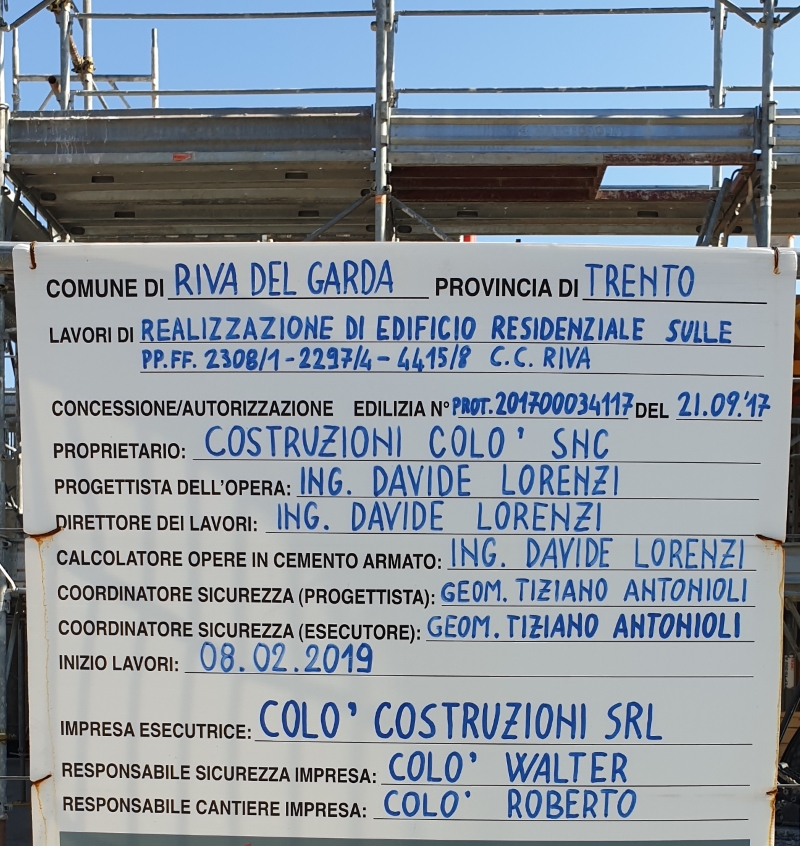 COMUNE DI RIVA DEL GARDA PROVINCIA DI TRENTO
LAVORI DI REALIZZAZIONE DI EDIFICIO RESIDENZIALE SULLE
PP.FF. 2308/1-2297/4-4415/8 C.C. RIVA
CONCESSIONE/AUTORIZZAZIONE EDILIZIA N° PROT.201700034117 DEL 21.09.'17
PROPRIETARIO: COSTRUZIONI COLO' SNC
PROGETTISTA DELL'OPERA: ING. DAVIDE LORENZI
DIRETTORE DEI LAVORI: ING. DAVIDE LORENZI
CALCOLATORE OPERE IN CEMENTO ARMATO: ING. DAVIDE LORENZI
COORDINATORE SICUREZZA (PROGETTISTA): GEOM. TIZIANO ANTONIOLI
COORDINATORE SICUREZZA (ESECUTORE): GEOM. TIZIANO ANTONIOLI
INIZIO LAVORI: 08.02.2019
IMPRESA ESECUTRICE: COLO' COSTRUZIONI SRL
RESPONSABILE SICUREZZA IMPRESA: COLO' WALTER
RESPONSABILE CANTIERE IMPRESA: COLO' ROBERTO